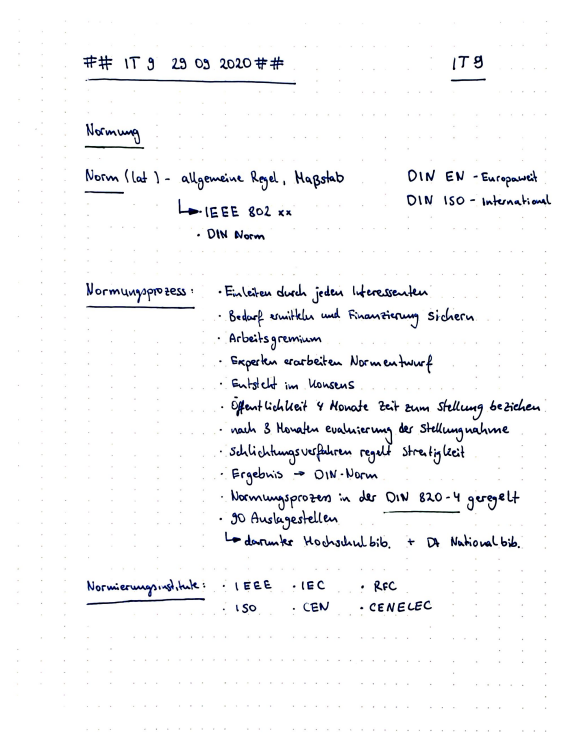 ## IT 9 29 09 2020 ##
IT 9
Normung
Norm (lat) - allgemeine Regel, Maßstab
↳ · IEEE 802 xx
· DIN Norm
DIN EN - Europaweit
DIN ISO - International
Normungsprozess:
· Einleiten durch jeden Interessenten
· Bedarf ermitteln und Finanzierung sichern
· Arbeitsgremium
· Experten erarbeiten Normentwurf
· Entsteht im Konsens
· Öffentlichkeit 4 Monate Zeit zum Stellung beziehen
· nach 3 Monaten evaluierung der Stellungnahme
· Schlichtungsverfahren regelt Streitigkeit
· Ergebnis → DIN-Norm
· Normungsprozess in der DIN 820-4 geregelt
· 90 Auslagestellen
↳ darunter Hochschulbib. + Dt Nationalbib.
Normierungsinstitute: · IEEE · IEC · RFC
· ISO · CEN · CENELEC